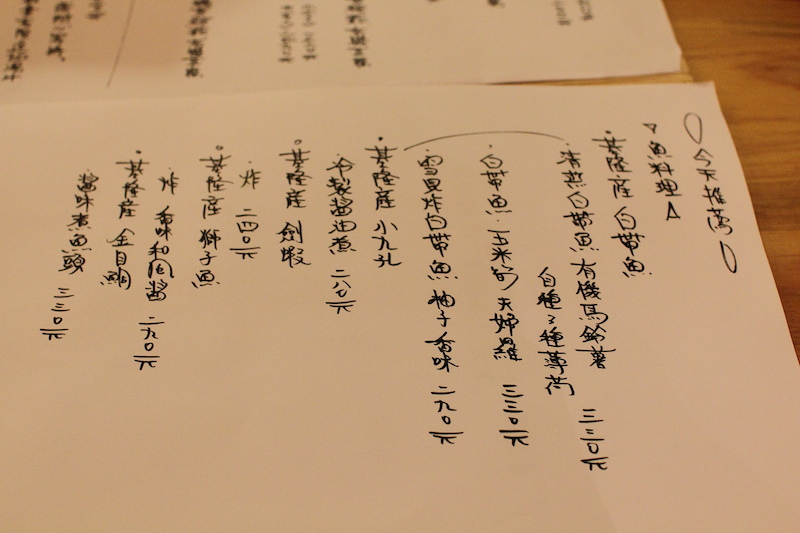 今天推薦
魚料理
基隆産 白帶魚
清蒸白帶魚 有機馬鈴薯
自種3種薄荷 三三〇元
白帶魚・玉米筍 天婦羅 三三〇元
雪見炸白帶魚 柚子香味 二九〇元
基隆産 小九孔
冷製醬油煮 二八〇元
基隆産 劍蝦
炸 二四〇元
基隆産 獅子魚
炸 香味和風醬 二九〇元
基隆産 金目鯛
醬味煮魚頭 三三〇元